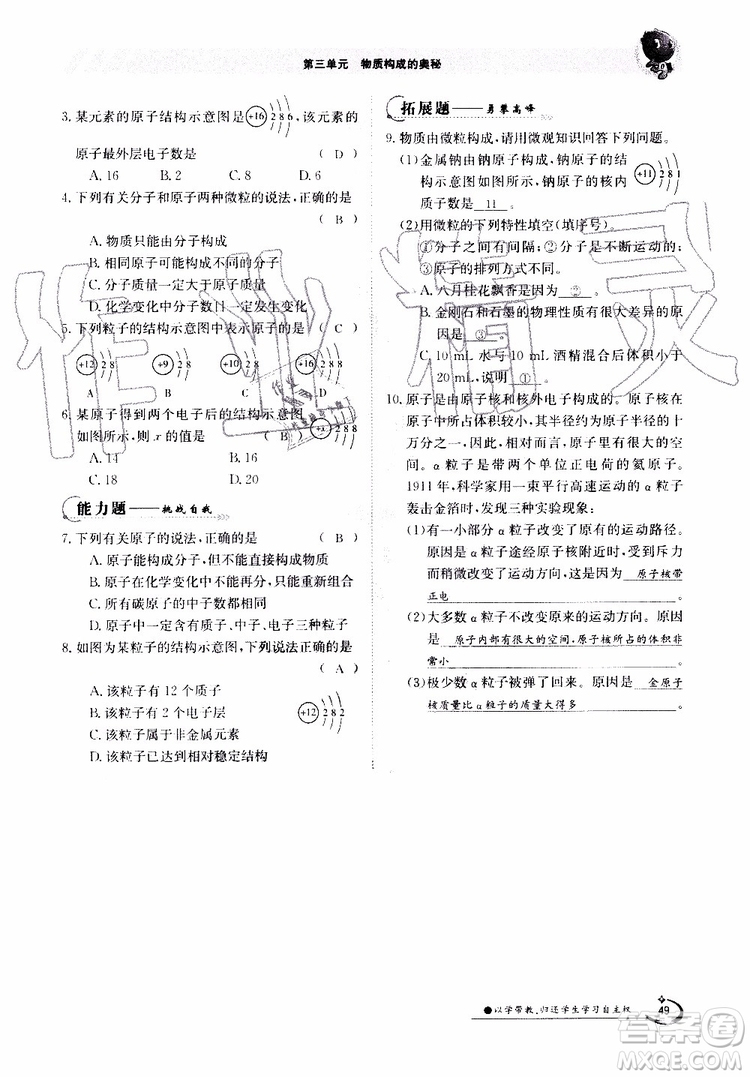 第三单元 物质构成的奥秘
3. 某元素的原子结构示意图是 +16 2 8 6 ，该元素的
原子最外层电子数是 （ D ）
A. 16 B. 2 C. 8 D. 6
4. 下列有关分子和原子两种微粒的说法，正确的是
（ B ）
A. 物质只能由分子构成
B. 相同原子可能构成不同的分子
C. 分子是保持物质性质的一种微粒
D. 化学变化中分子数目一定发生变化
5. 下列粒子的结构示意图中表示原子的是 （ C ）
+12 2 8 +9 2 8 +10 2 8 +11 2 8
A B C D
6. 某原子得到两个电子后的结构示意图
如图所示，则 x 的值是 （ B ） +x 2 8 8
A. 14 B. 16
C. 18 D. 20
能力题——挑战自我
7. 下列有关原子的说法，正确的是 （ B ）
A. 原子能构成分子，但不能直接构成物质
B. 原子在化学变化中不能再分，只能重新组合
C. 所有碳原子的质子数和中子数都相等
D. 原子中一定含有质子、中子、电子三种粒子
8. 如图为某粒子的结构示意图，下列说法正确的是
（ A ）
A. 该粒子有 12 个质子
B. 该粒子有 2 个电子层 +12 2 8 2
C. 该粒子属于非金属元素
D. 该粒子已达到相对稳定结构
拓展题——勇攀高峰
9. 物质由微粒构成，请用微观知识回答下列问题。
(1)金属钠由钠原子构成，钠原子的结
构示意图如图所示，钠原子的核内 +11 2 8 1
质子数是 11 。
(2)用微粒的下列特性填空(填序号)。
①分子之间有间隔；②分子是不断运动的；
③原子的排列方式不同。
A. 八月桂花飘香是因为 ② 。
B. 金刚石和石墨的物理性质有很大差异的原
因是 ③ 。
C. 10 mL 水与 10 mL 酒精混合后体积小于
20 mL，说明 ① 。
10. 原子是由原子核和核外电子构成的。原子核在
原子中所占体积较小，其半径约为原子半径的十
万分之一，因此，相对而言，原子里有很大的空
间。α 粒子是带两个单位正电荷的氦原子。
1911 年，科学家用一束平行高速运动的 α 粒子
轰击金箔时，发现三种实验现象：
(1)有一小部分 α 粒子改变了原有的运动路径。
原因是 α 粒子途经原子核附近时，受到斥力
而稍微改变了运动方向，并说明 原子核带
正电 。
(2)大多数 α 粒子不改变原来的运动方向。原因
是 原子内部有很大的空间，原子核所占的体积非
常小 。
(3)极少数 α 粒子被弹了回来。原因是 金原子
核质量比 α 粒子的质量大得多 。
以学带教，归还学生学习自主权
49
作业精灵
答案圈
MXQE.COM